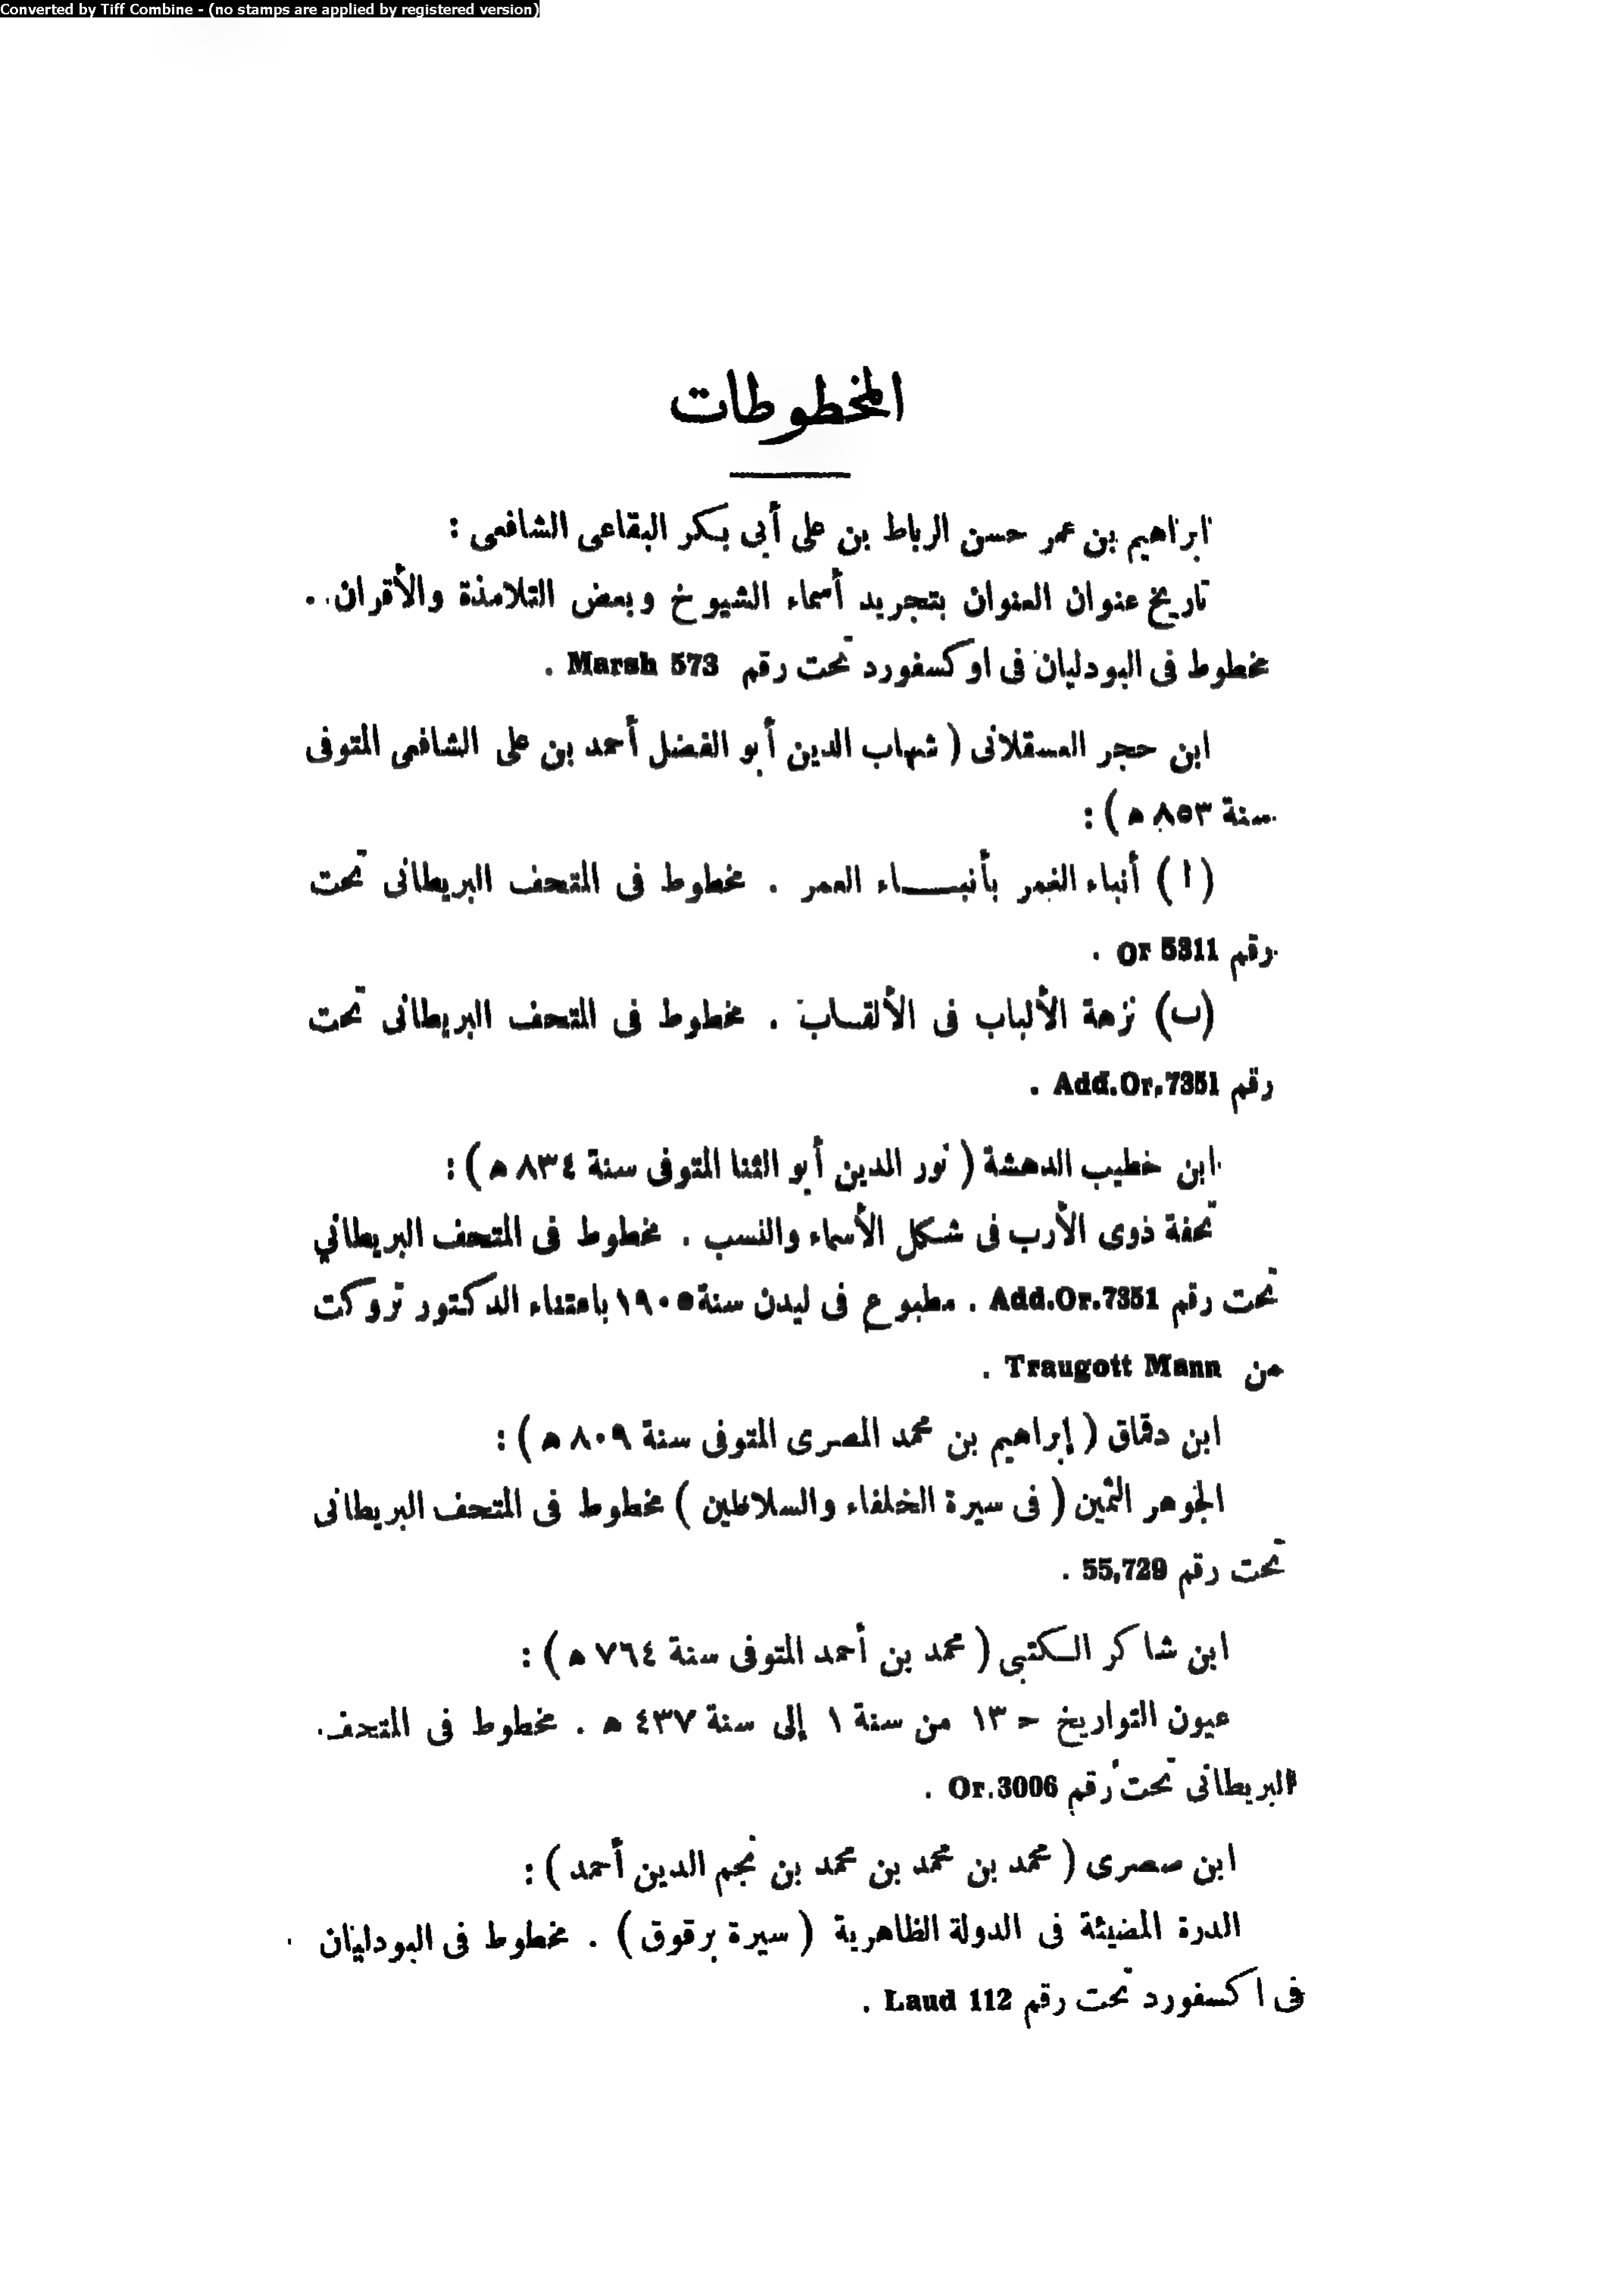 Converted by Tiff Combine - (no stamps are applied by registered version)
المخطوطات
ابراهيم بن عمر حسن الرباط بن على أبى بكر البقاعى الشافعى :
تاريخ عنوان العنوان بتجريد أسماء الشيوخ وبعض التلامذة والأقران .
مخطوط فى البودليان فى اوكسفورد تحت رقم Marsh 573 .
ابن حجر العسقلانى ( شهاب الدين أبو الفضل أحمد بن على الشافعى المتوفى
سنة ٨٥٣ هـ ) :
( ا ) أنباء الغمر بأنباء العمر . مخطوط فى المتحف البريطانى تحت
رقم Or 5311 .
(ب) نزهة الألباب فى الألقاب . مخطوط فى المتحف البريطانى تحت
رقم Add.Or.7351 .
ابن خطيب الدهشة ( نور الدين أبو الثنا المتوفى سنة ٨٣٤ هـ ) :
تحفة ذوى الأرب فى شكل الأسماء والنسب . مخطوط فى المتحف البريطاني
تحت رقم Add.Or.7351 . مطبوع فى ليدن سنة ١٩٠٥ باعتناء الدكتور تروكت
من Traugott Mann .
ابن دقاق ( إبراهيم بن محمد المصرى المتوفى سنة ٨٠٩ هـ ) :
الجوهر الثمين ( فى سيرة الخلفاء والسلاطين ) مخطوط فى المتحف البريطانى
تحت رقم 55,729 .
ابن شاكر الكتبى ( محمد بن أحمد المتوفى سنة ٧٦٤ هـ ) :
عيون التواريخ حـ ١٣ من سنة ١ إلى سنة ٤٣٧ هـ . مخطوط فى المتحف
البريطانى تحت رقم Or.3006 .
ابن صصرى ( محمد بن محمد بن محمد بن نجم الدين أحمد ) :
الدرة المضيئة فى الدولة الظاهرية ( سيرة برقوق ) . مخطوط فى البودليان
فى اكسفورد تحت رقم Laud 112 .